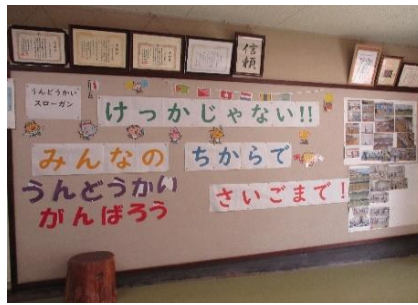 信頼
うんどうかい
スローガン
けっかじゃない!!
みんなの ちからで
うんどうかい
がんばろう
さいごまで!